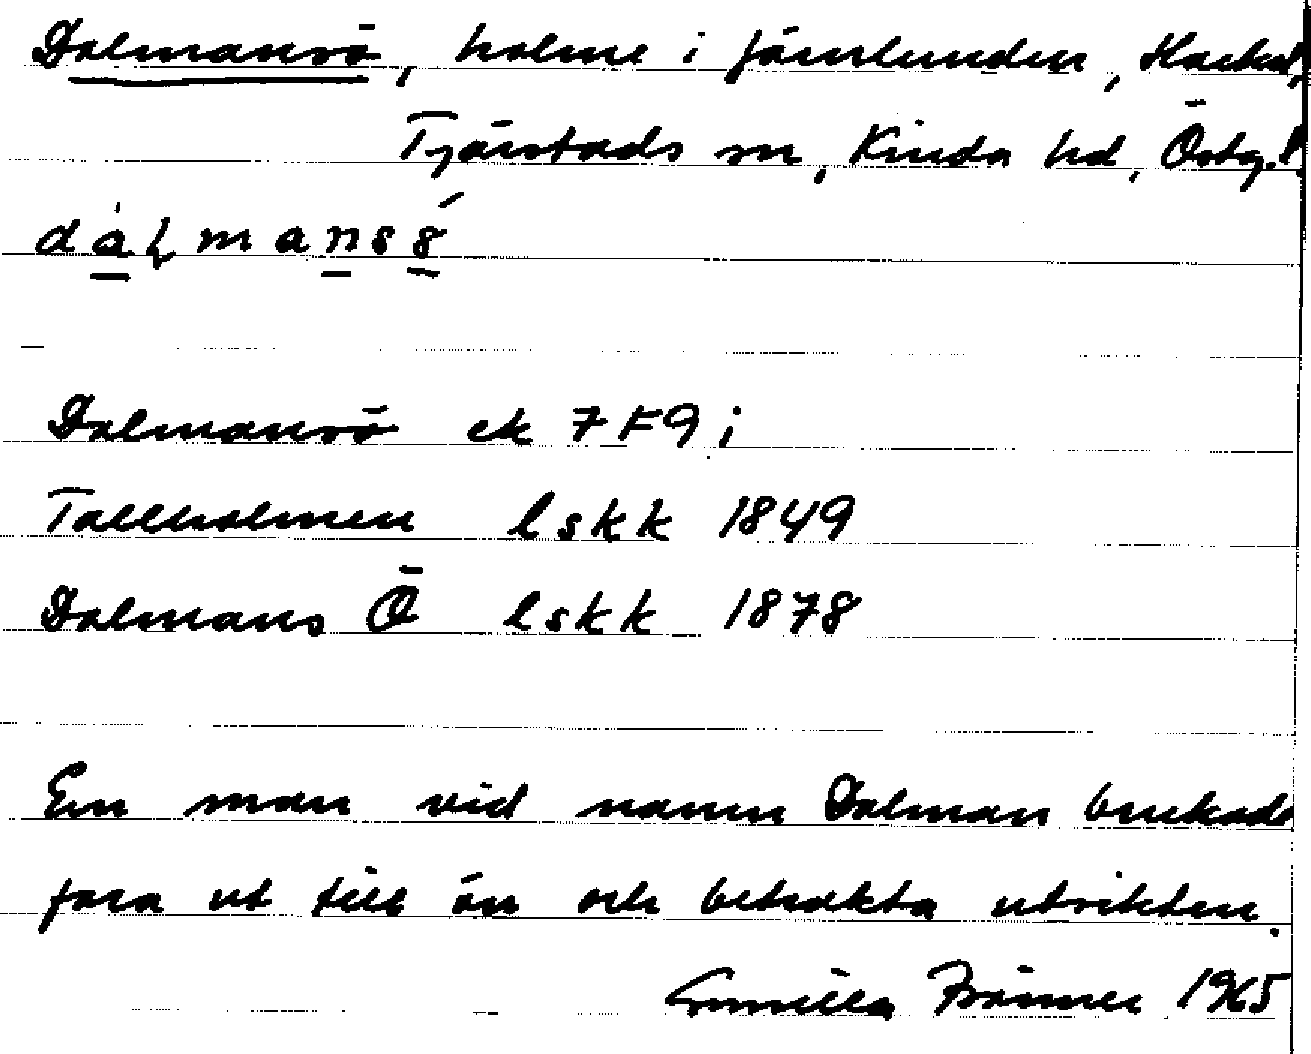 Dalmansö, holme i Järnlunden, Hackel,
Tjärstads sn, Kinda hd, Östg.l.
Dalmansö ek 7F9i
Tallholmen lskk 1849
Dalmans Ö lskk 1878
En man vid namn Dalman brukade
fara ut till ön och betrakta utsikten.
Gunilla 1965